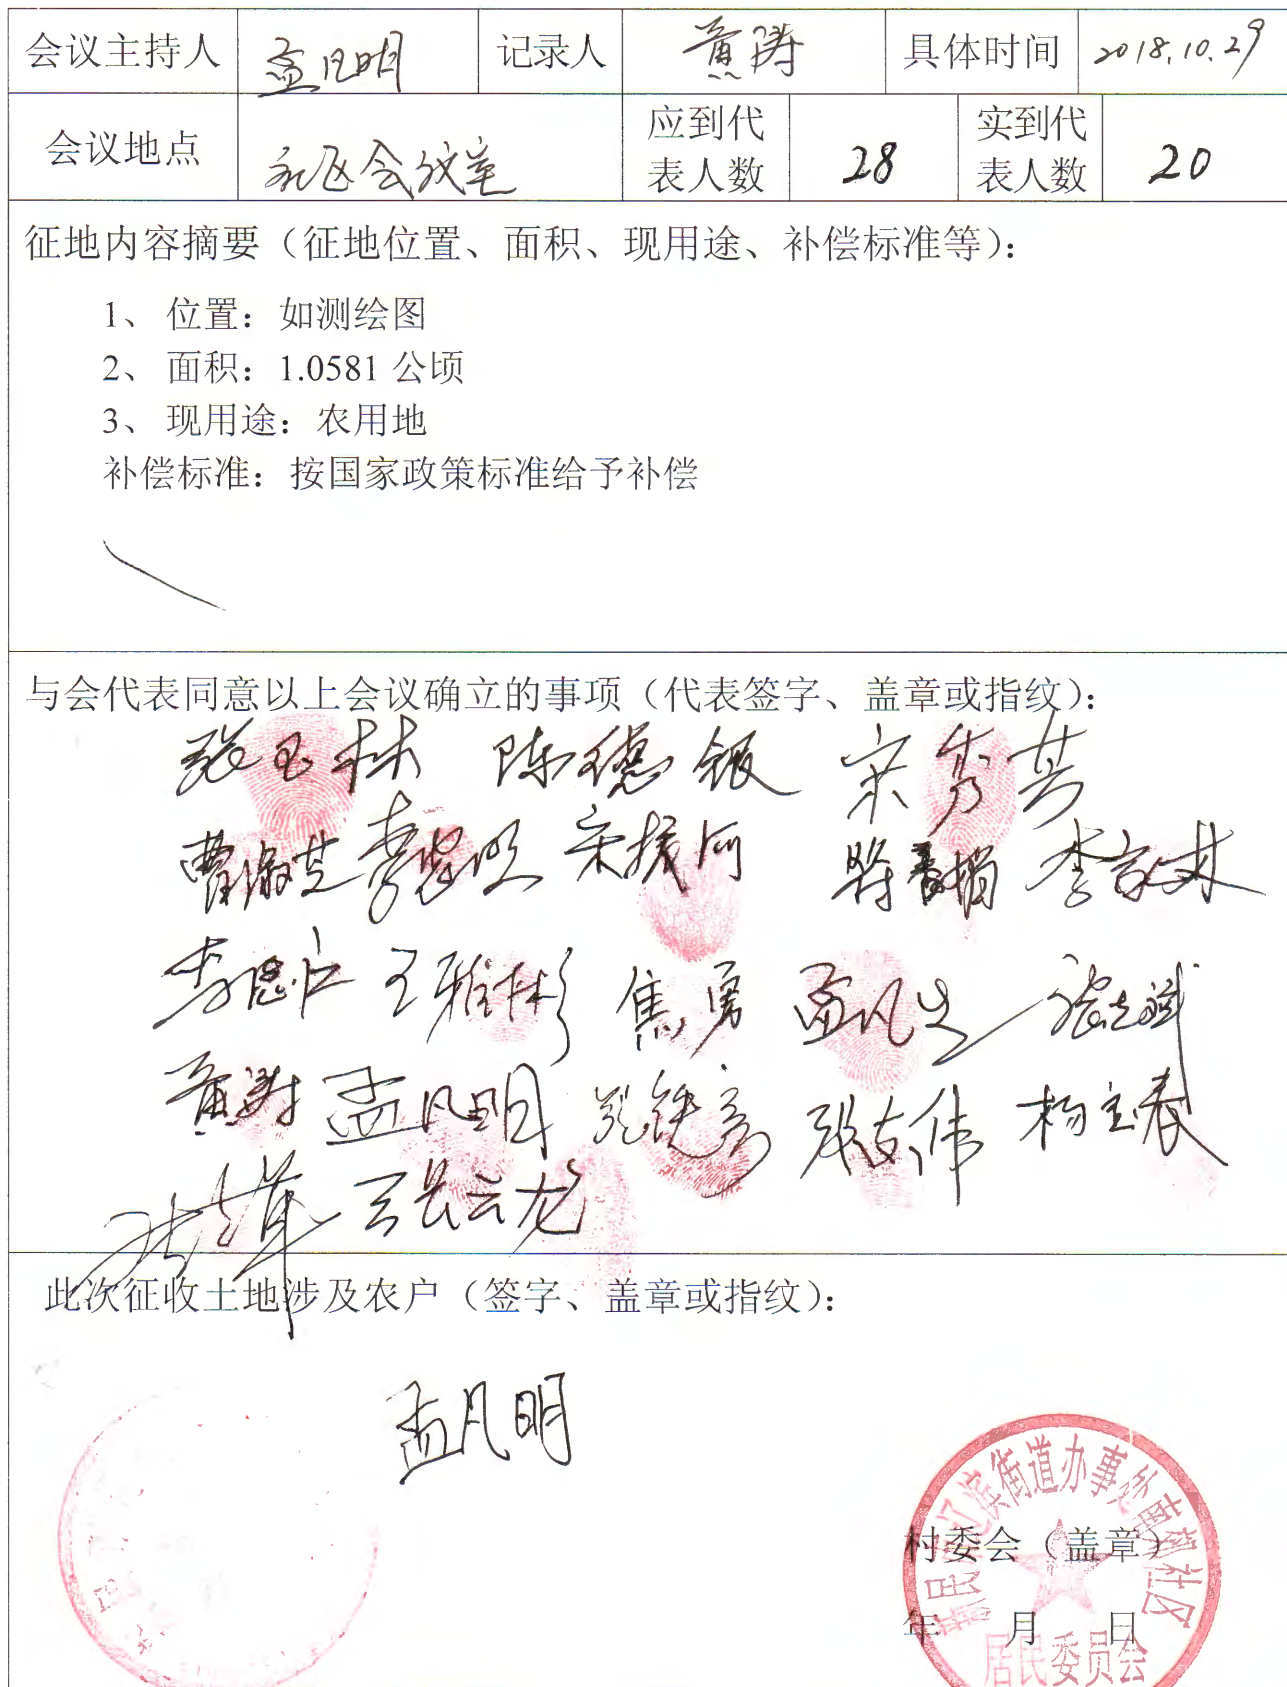 会议主持人 孟凡明 记录人 黄涛 具体时间 2018.10.29
会议地点 社区会议室 应到代表人数 28 实到代表人数 20
征地内容摘要（征地位置、面积、现用途、补偿标准等）：
1、 位置：如测绘图
2、 面积：1.0581 公顷
3、 现用途：农用地
补偿标准：按国家政策标准给予补偿
与会代表同意以上会议确立的事项（代表签字、盖章或指纹）：
张玉林 陈德银 宋秀芬
曹淑芝 宋振河 李家林
王雅彬 焦勇 孟凡生 张志斌
黄涛 孟凡明 张友伟 杨宝春
云龙
此次征收土地涉及农户（签字、盖章或指纹）：
孟凡明
辽滨街道办事处 社区
村委会（盖章）
年 月 日
居民委员会